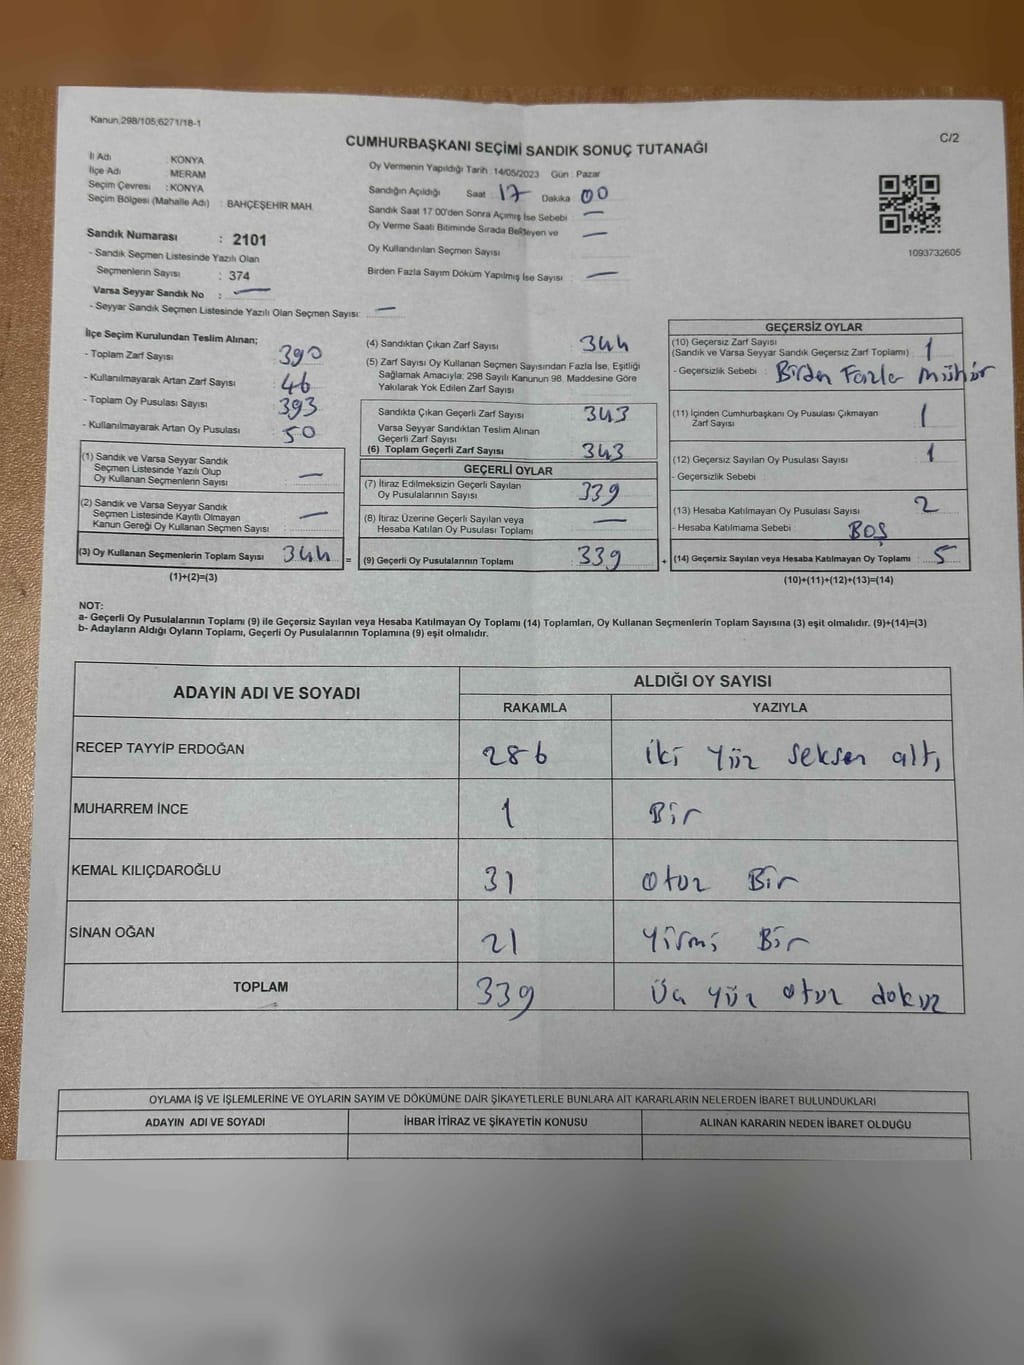 Kanun,298/105,6271/18-1
C/2
CUMHURBAŞKANI SEÇİMİ SANDIK SONUÇ TUTANAĞI
İl Adı : KONYA
İlçe Adı : MERAM
Seçim Çevresi : KONYA
Seçim Bölgesi (Mahalle Adı) : BAHÇEŞEHİR MAH.
Sandık Numarası : 2101
- Sandık Seçmen Listesinde Yazılı Olan
Seçmenlerin Sayısı : 374
Varsa Seyyar Sandık No : —
- Seyyar Sandık Seçmen Listesinde Yazılı Olan Seçmen Sayısı: —
Oy Vermenin Yapıldığı Tarih :14/05/2023 Gün : Pazar
Sandığın Açıldığı Saat : 17 Dakika : 00
Sandık Saat 17 00'den Sonra Açımış İse Sebebi : —
Oy Verme Saati Bitiminde Sırada Bekleyen ve —
Oy Kullandırılan Seçmen Sayısı
Birden Fazla Sayım Döküm Yapılmış İse Sayısı : —
1093732605
İlçe Seçim Kurulundan Teslim Alınan;
- Toplam Zarf Sayısı : 390
- Kullanılmayarak Artan Zarf Sayısı : 46
- Toplam Oy Pusulası Sayısı : 393
- Kullanılmayarak Artan Oy Pusulası : 50
(1) Sandık ve Varsa Seyyar Sandık
Seçmen Listesinde Yazılı Olup
Oy Kullanan Seçmenlerin Sayısı : —
(2) Sandık ve Varsa Seyyar Sandık
Seçmen Listesinde Kayıtlı Olmayan
Kanun Gereği Oy Kullanan Seçmen Sayısı : —
(3) Oy Kullanan Seçmenlerin Toplam Sayısı : 344 =
(1)+(2)=(3)
(4) Sandıktan Çıkan Zarf Sayısı : 344
(5) Zarf Sayısı Oy Kullanan Seçmen Sayısından Fazla İse, Eşitliği
Sağlamak Amacıyla; 298 Sayılı Kanunun 98. Maddesine Göre
Yakılarak Yok Edilen Zarf Sayısı :
Sandıkta Çıkan Geçerli Zarf Sayısı : 343
Varsa Seyyar Sandıktan Teslim Alınan
Geçerli Zarf Sayısı :
(6) Toplam Geçerli Zarf Sayısı : 343
GEÇERLİ OYLAR
(7) İtiraz Edilmeksizin Geçerli Sayılan
Oy Pusulalarının Sayısı : 339
(8) İtiraz Üzerine Geçerli Sayılan veya
Hesaba Katılan Oy Pusulası Toplamı : —
(9) Geçerli Oy Pusulalarının Toplamı : 339 +
GEÇERSİZ OYLAR
(10) Geçersiz Zarf Sayısı
(Sandık ve Varsa Seyyar Sandık Geçersiz Zarf Toplamı) : 1
- Geçersizlik Sebebi : Birden Fazla mühür
(11) İçinden Cumhurbaşkanı Oy Pusulası Çıkmayan
Zarf Sayısı : 1
(12) Geçersiz Sayılan Oy Pusulası Sayısı : 1
- Geçersizlik Sebebi :
(13) Hesaba Katılmayan Oy Pusulası Sayısı : 2
- Hesaba Katılmama Sebebi : BOŞ
(14) Geçersiz Sayılan veya Hesaba Katılmayan Oy Toplamı : 5
(10)+(11)+(12)+(13)=(14)
NOT:
a- Geçerli Oy Pusulalarının Toplamı (9) ile Geçersiz Sayılan veya Hesaba Katılmayan Oy Toplamı (14) Toplamları, Oy Kullanan Seçmenlerin Toplam Sayısına (3) eşit olmalıdır. (9)+(14)=(3)
b- Adayların Aldığı Oyların Toplamı, Geçerli Oy Pusulalarının Toplamına (9) eşit olmalıdır.
ADAYIN ADI VE SOYADI
ALDIĞI OY SAYISI
RAKAMLA YAZIYLA
RECEP TAYYİP ERDOĞAN 286 iki yüz seksen altı
MUHARREM İNCE 1 Bir
KEMAL KILIÇDAROĞLU 31 otuz Bir
SİNAN OĞAN 21 Yirmi Bir
TOPLAM 339 Üç yüz otuz dokuz
OYLAMA İŞ VE İŞLEMLERİNE VE OYLARIN SAYIM VE DÖKÜMÜNE DAİR ŞİKAYETLERLE BUNLARA AİT KARARLARIN NELERDEN İBARET BULUNDUKLARI
ADAYIN ADI VE SOYADI İHBAR İTİRAZ VE ŞİKAYETİN KONUSU ALINAN KARARIN NEDEN İBARET OLDUĞU